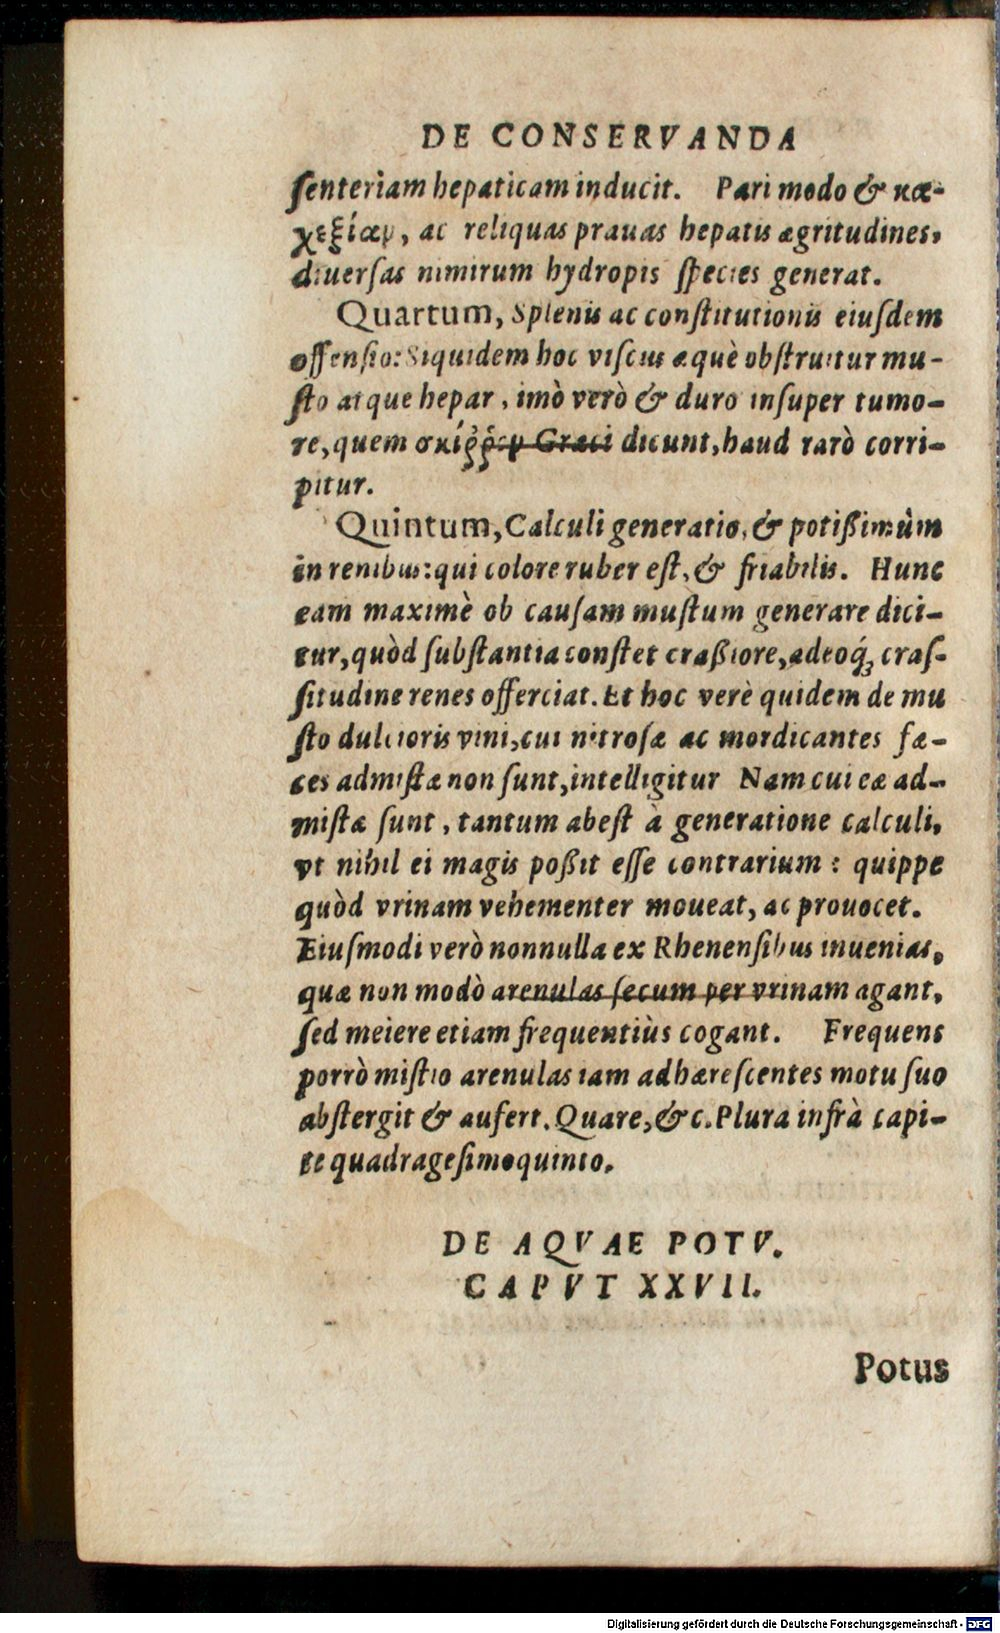 DE CONSERVANDA
ſenteriam hepaticam inducit. Pari modo & κα-
χεξίαν, ac reliquas prauas hepatis ægritudines,
diuerſas nimirum hydropis ſpecies generat.
Quartum, Splenis ac conſtitutionis eiuſdem
offenſio: Siquidem hoc viſcus æquè obſtruitur mu-
ſto atque hepar, imò verò & duro inſuper tumo-
re, quem σκίῤῥον Græci dicunt, haud rarò corri-
pitur.
Quintum, Calculi generatio, & potißimùm
in renibus: qui colore ruber eſt, & friabilis. Hunc
eam maximè ob cauſam muſtum generare dici-
tur, quòd ſubſtantia conſtet craßiore, adeoq́; craſ-
ſitudine renes offerciat. Et hoc verè quidem de mu
ſto dulcioris vini, cui nitroſæ ac mordicantes fæ-
ces admiſtæ non ſunt, intelligitur Nam cui eæ ad-
miſtæ ſunt, tantum abeſt à generatione calculi,
vt nihil ei magis poßit eſſe contrarium: quippe
quòd vrinam vehementer moueat, ac prouocet.
Eiuſmodi verò nonnulla ex Rhenenſibus inuenias,
quæ non modò arenulas ſecum per vrinam agant,
ſed meiere etiam frequentiùs cogant. Frequens
porrò miſtio arenulas iam adhæreſcentes motu ſuo
abſtergit & aufert. Quare, &c. Plura infrà capi-
te quadrageſimoquinto.
DE AQVAE POTV.
CAPVT XXVII.
Potus
Digitalisierung gefördert durch die Deutsche Forschungsgemeinschaft - DFG